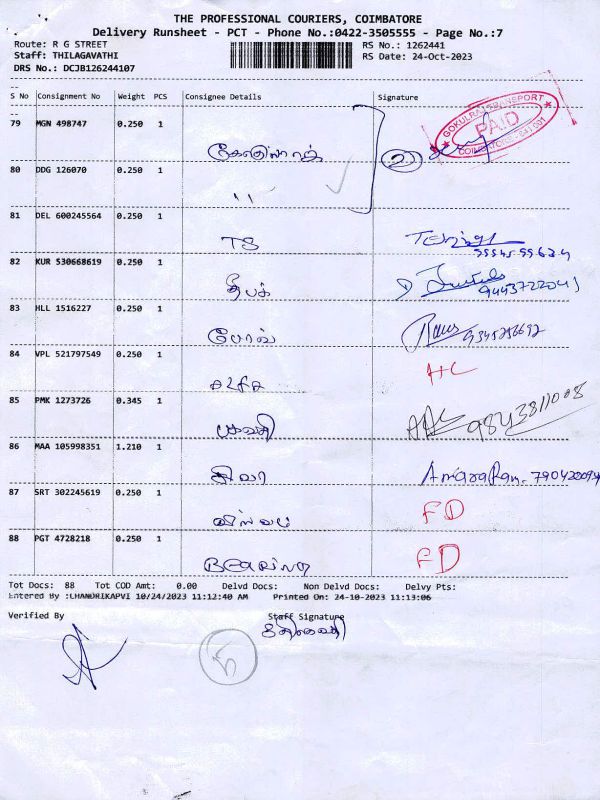 THE PROFESSIONAL COURIERS, COIMBATORE
Delivery Runsheet - PCT - Phone No.:0422-3505555 - Page No.:7
Route: R G STREET
RS No.: 1262441
Staff: THILAGAVATHI
RS Date: 24-Oct-2023
DRS No.: DCJB126244107
S No Consignment No Weight PCS Consignee Details Signature
79 MGN 498747 0.250 1
GOKULRAJ TRANSPORT
PAID
2
80 DDG 126070 0.250 1
"
81 DEL 600245564 0.250 1
TS
82 KUR 530668619 0.250 1
தீபக்
9443722041
83 HLL 1516227 0.250 1
போஸ்
84 VPL 521797549 0.250 1
HC
85 PMK 1273726 0.345 1
9843811008
86 MAA 105998351 1.210 1
சிவா
87 SRT 302245619 0.250 1
FD
88 PGT 4728218 0.250 1
FD
Tot Docs: 88 Tot COD Amt: 0.00 Delvd Docs: Non Delvd Docs: Delvy Pts:
Entered By :CHANDRIKAPVI 10/24/2023 11:12:40 AM Printed On: 24-10-2023 11:13:06
Verified By Staff Signature
5